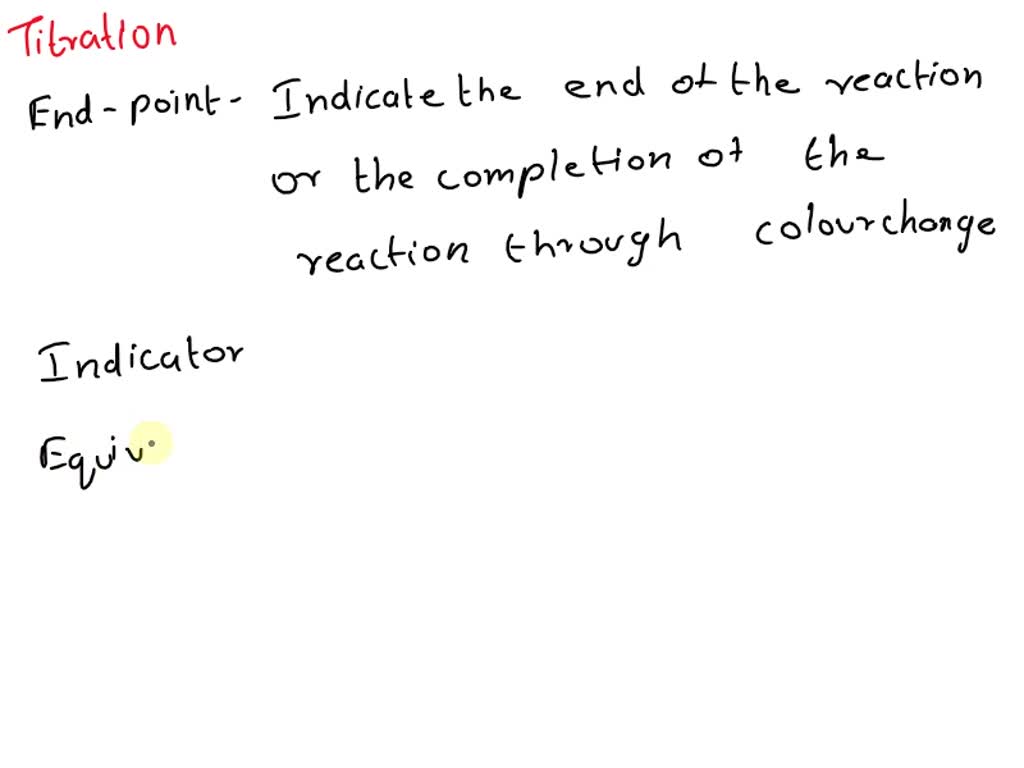 Titration
End-point- Indicate the end of the reaction
or the completion of the
reaction through colourchange
Indicator
Equiv